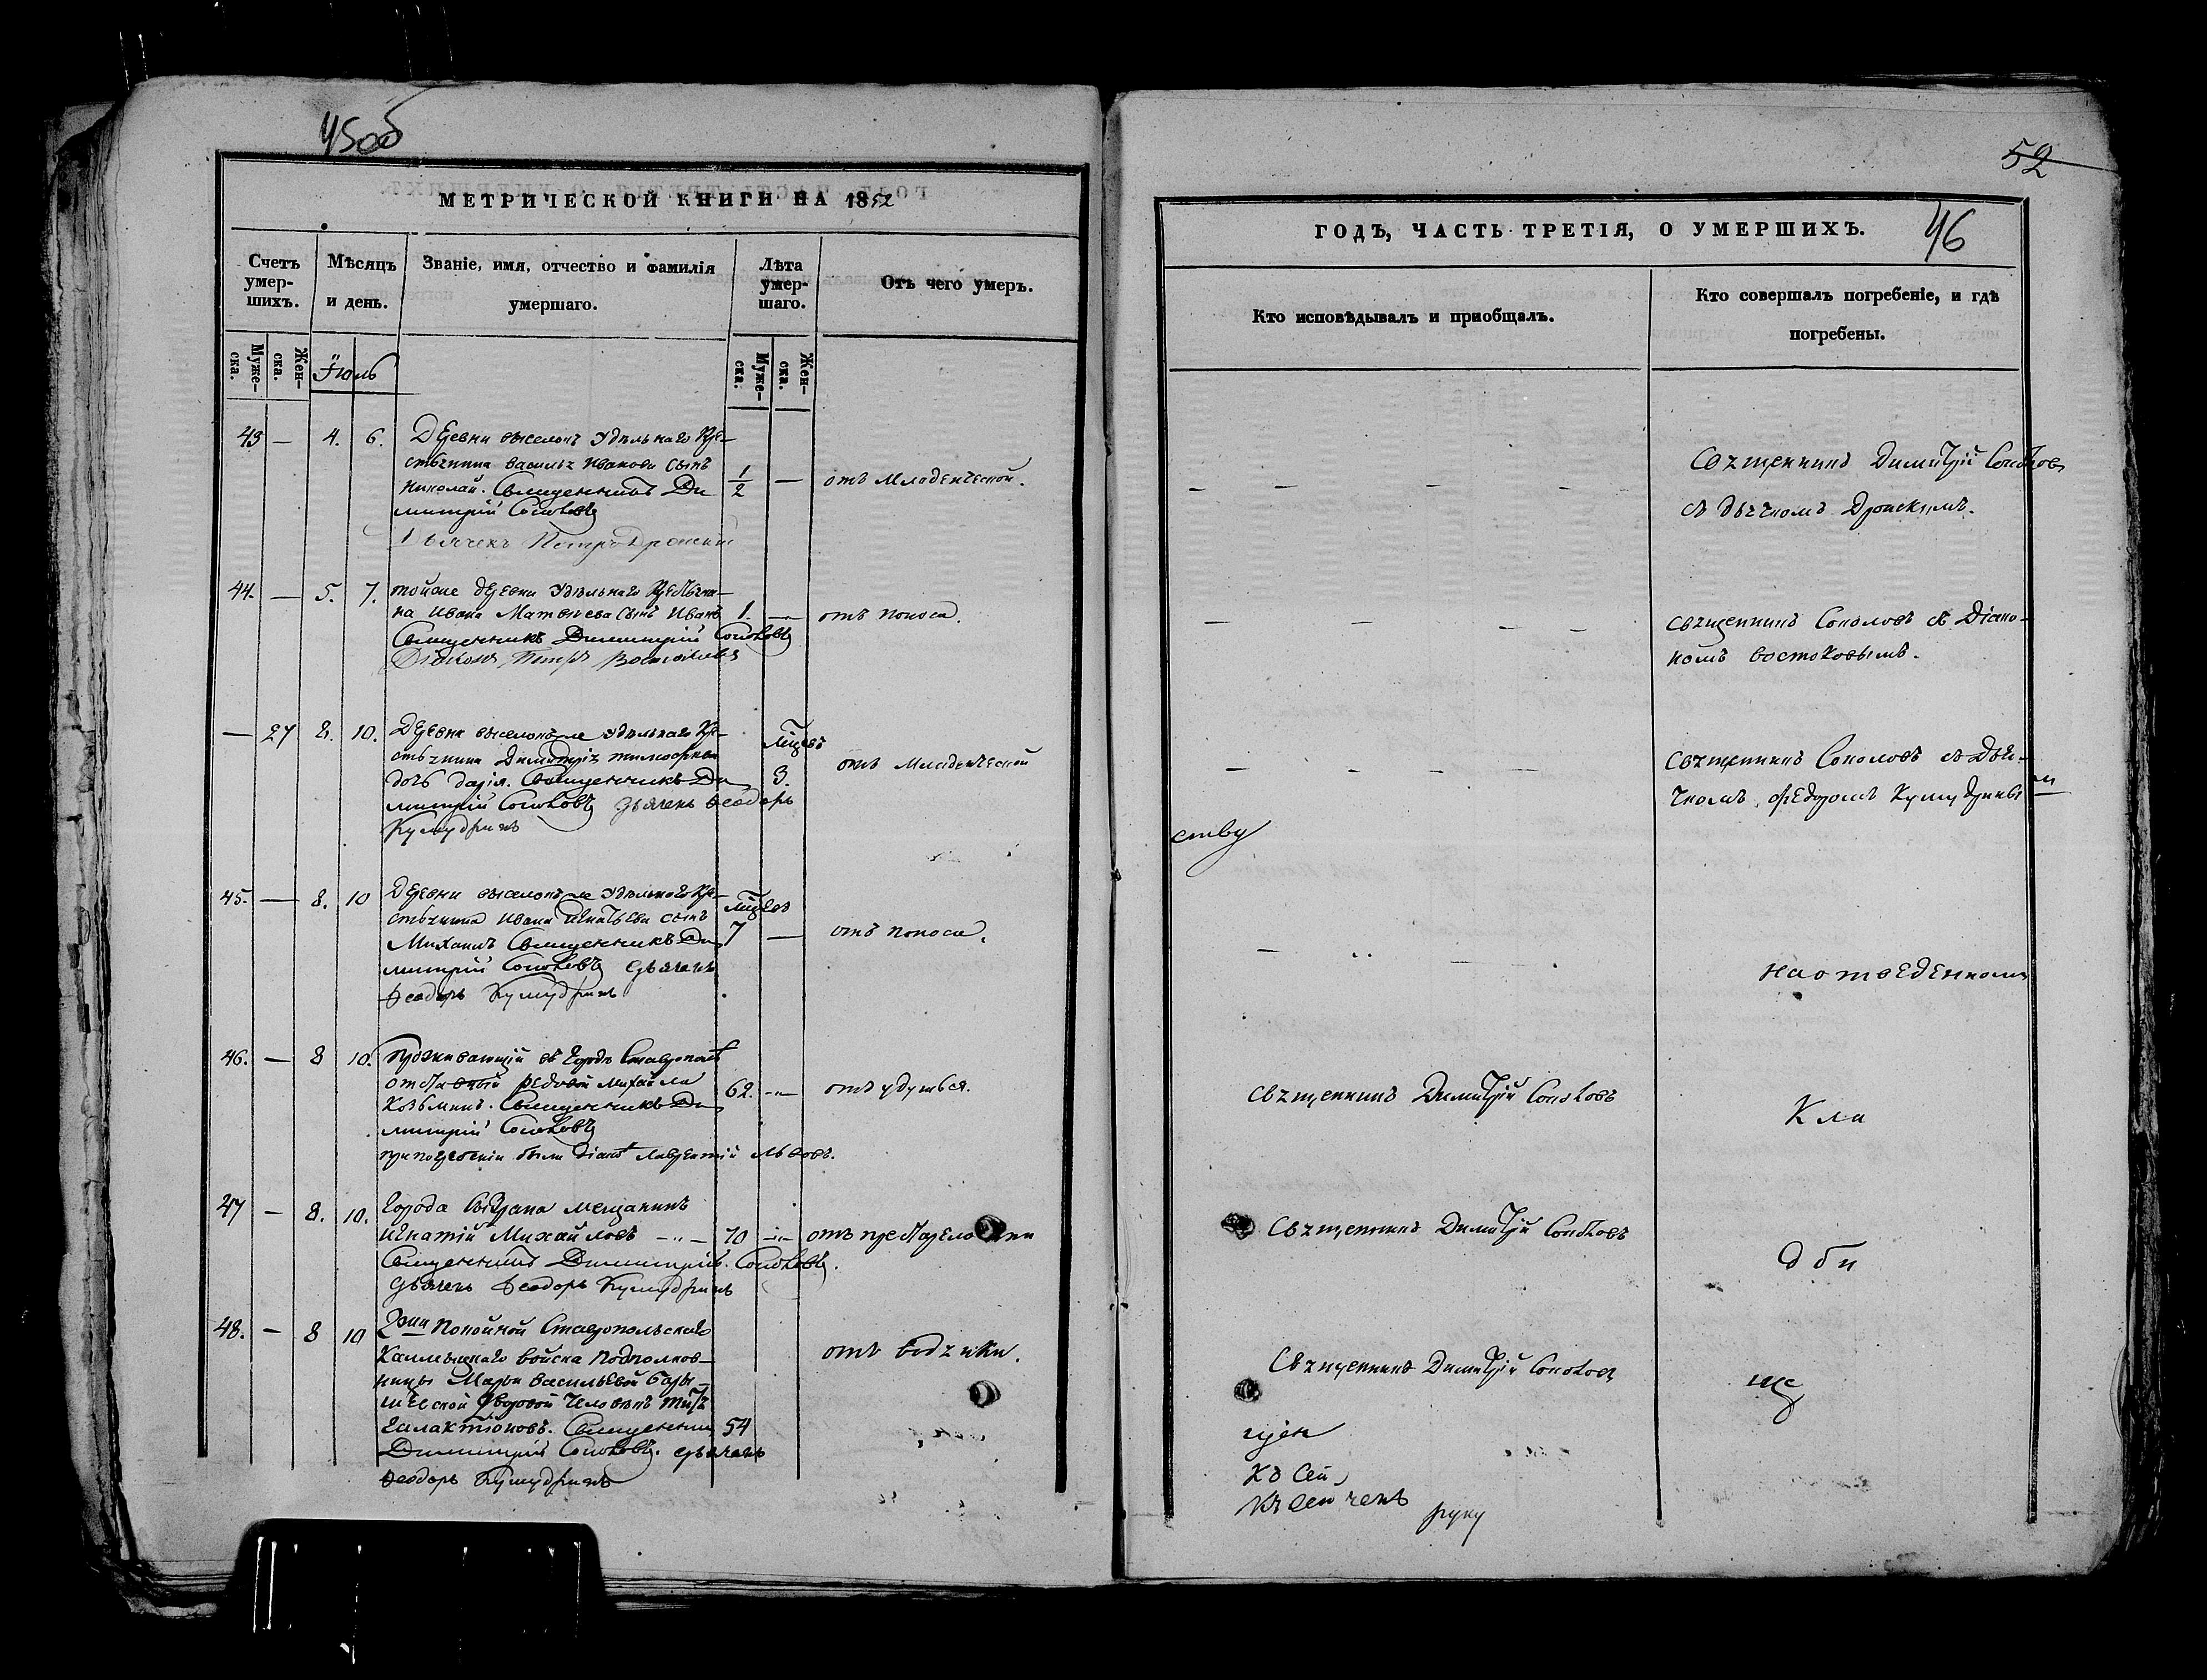 45об
МЕТРИЧЕСКОЙ КНИГИ НА 1852
Счетъ умер-шихъ.
Мѣсяцъ и день.
Званіе, имя, отчество и фамилія умершаго.
Лѣта умер-шаго.
Отъ чего умеръ.
Муже-ска.
Жен-ска.
Іюль
Муже-ска.
Жен-ска.
43 — 4. 6. Деревни выселокъ удѣльнаго Кре-
стьянина Василья Иванова сынъ
Николай. Священникъ Ди
митрій Соколовъ
Дьячекъ Петръ Дронскій
1/2 — отъ младенческой.
44. — 5. 7. той же деревни удѣльнаго Крестьяни-
на Ивана Матвѣева сынъ Иванъ
Священникъ Димитрій Соколовъ
Діаконъ Петръ Востоковъ
1. — отъ поноса.
— 27 8. 10. Деревни выселокъ же удѣльнаго Кре-
стьянина Димитрія Тимофеева
дочь Дарія. Священникъ Ди
митрій Соколовъ дьячекъ Феодоръ
Кумудринъ
3. отъ младенческой
45. — 8. 10 Деревни выселокъ же удѣльнаго Кре-
стьянина Ивана Игнатьева сынъ
Михаилъ Священникъ Ди
митрій Соколовъ дьячекъ
Феодоръ Кумудринъ
7 — отъ поноса.
46. — 8 10. Проживающій въ городѣ Ставрополѣ
отставный рядовой Михайла
Козьминъ. Священникъ Ди
митрій Соколовъ
при погребеніи былъ діаконъ Лаврентій Львовъ.
62. — отъ удушья.
47 — 8. 10. Города Сызрана мещанинъ
Игнатій Михайловъ — 70 — отъ престарелости
Священникъ Димитрій Соколовъ.
дьячекъ Феодоръ Кумудринъ
48. — 8 10 Покойной Ставропольскаго
Калмыцкаго войска Подполков-
ницы Марьи Васильевой
дворовой человекъ
Галактіоновъ. Священник 54
Димитрій Соколовъ. дьячекъ
Феодоръ Кумудринъ
отъ водянки.
52
46
ГОДЪ, ЧАСТЬ ТРЕТІЯ, О УМЕРШИХЪ.
Кто исповѣдывалъ и пріобщалъ.
Кто совершалъ погребеніе, и гдѣ погребены.
Священникъ Димитрій Соколовъ
съ дьячкомъ Дронскимъ.
священникъ Соколовъ съ Діако-
номъ Востоковымъ.
священникъ Соколовъ съ Дья-
чкомъ Федоромъ Кумудринымъ
ству
На отведенномъ
Священникъ Димитрій Соколовъ
Кла
Священникъ Димитрій Соколовъ
дби
Священникъ Димитрій Соколовъ
ще
къ сей
руку